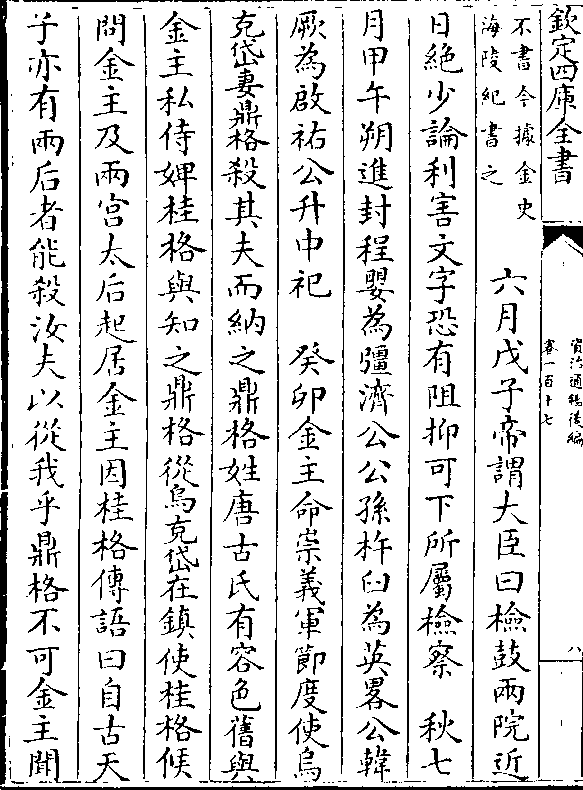 欽定四庫全書
資治通鑑後編
卷一百十七
八
不書今據金史
海陵紀書之
六月戊子帝謂大臣曰檢鼓兩院近
日絶少論利害文字恐有阻抑可下所屬檢察　秋七
月甲午朔進封程嬰為彊濟公公孫杵臼為英畧公韓
厥為啟祐公升中祀　癸卯金主命崇義軍節度使烏
克岱妻鼎格殺其夫而納之鼎格姓唐古氏有容色舊與
金主私侍婢桂格與知之鼎格從烏克岱在鎮使桂格候
問金主及兩宮太后起居金主因桂格傳語曰自古天
子亦有兩后者能殺汝夫以從我乎鼎格不可金主聞